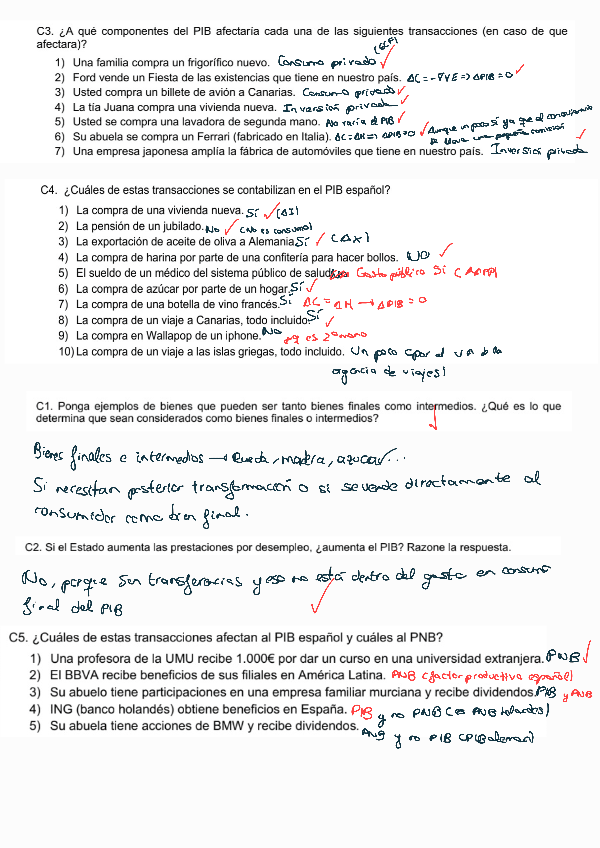 C3. ¿A qué componentes del PIB afectaría cada una de las siguientes transacciones (en caso de que
afectara)?
1) Una familia compra un frigorífico nuevo. Consumo privado (GCF)
2) Ford vende un Fiesta de las existencias que tiene en nuestro país. ΔC = -∇VE => ΔPIB = 0
3) Usted compra un billete de avión a Canarias. Consumo privado
4) La tía Juana compra una vivienda nueva. Inversión privada
5) Usted se compra una lavadora de segunda mano. No varía el PIB Aunque un poco sí ya que el concesionario se lleva una pequeña comisión
6) Su abuela se compra un Ferrari (fabricado en Italia). ΔC = ΔM => ΔPIB = 0
7) Una empresa japonesa amplía la fábrica de automóviles que tiene en nuestro país. Inversión privada
C4. ¿Cuáles de estas transacciones se contabilizan en el PIB español?
1) La compra de una vivienda nueva. Sí (ΔI)
2) La pensión de un jubilado. No (No es consumo)
3) La exportación de aceite de oliva a Alemania. Sí (ΔX)
4) La compra de harina por parte de una confitería para hacer bollos. NO
5) El sueldo de un médico del sistema público de salud. Gasto público Sí
6) La compra de azúcar por parte de un hogar. Sí
7) La compra de una botella de vino francés. Sí ΔC = ΔM → ΔPIB = 0
8) La compra de un viaje a Canarias, todo incluido. Sí
9) La compra en Wallapop de un iphone. No pq es 2ª mano
10) La compra de un viaje a las islas griegas, todo incluido. Un poco (por el VA de la
agencia de viajes)
C1. Ponga ejemplos de bienes que pueden ser tanto bienes finales como intermedios. ¿Qué es lo que
determina que sean considerados como bienes finales o intermedios?
Bienes finales e intermedios → Rueda, madera, azucar...
Si necesitan posterior transformación o si se vende directamente al
consumidor como bien final.
C2. Si el Estado aumenta las prestaciones por desempleo, ¿aumenta el PIB? Razone la respuesta.
No, porque son transferencias y eso no está dentro del gasto en consumo
final del PIB
C5. ¿Cuáles de estas transacciones afectan al PIB español y cuáles al PNB?
1) Una profesora de la UMU recibe 1.000€ por dar un curso en una universidad extranjera. PNB
2) El BBVA recibe beneficios de sus filiales en América Latina. PNB (factor productivo español)
3) Su abuelo tiene participaciones en una empresa familiar murciana y recibe dividendos. PIB y PNB
4) ING (banco holandés) obtiene beneficios en España. PIB y no PNB (es PNB holandés)
5) Su abuela tiene acciones de BMW y recibe dividendos. PNB y no PIB (PIB alemán)